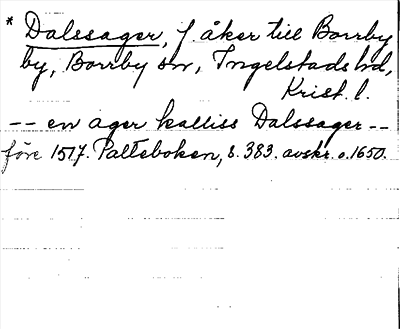 * Dalssager, f. åker till Borrby
by, Borrby sn, Ingelstads hd,
Krist. l.
-- en ager kalliss Dalssager --
före 1517. Palteboken, s. 383. avskr. o. 1650.